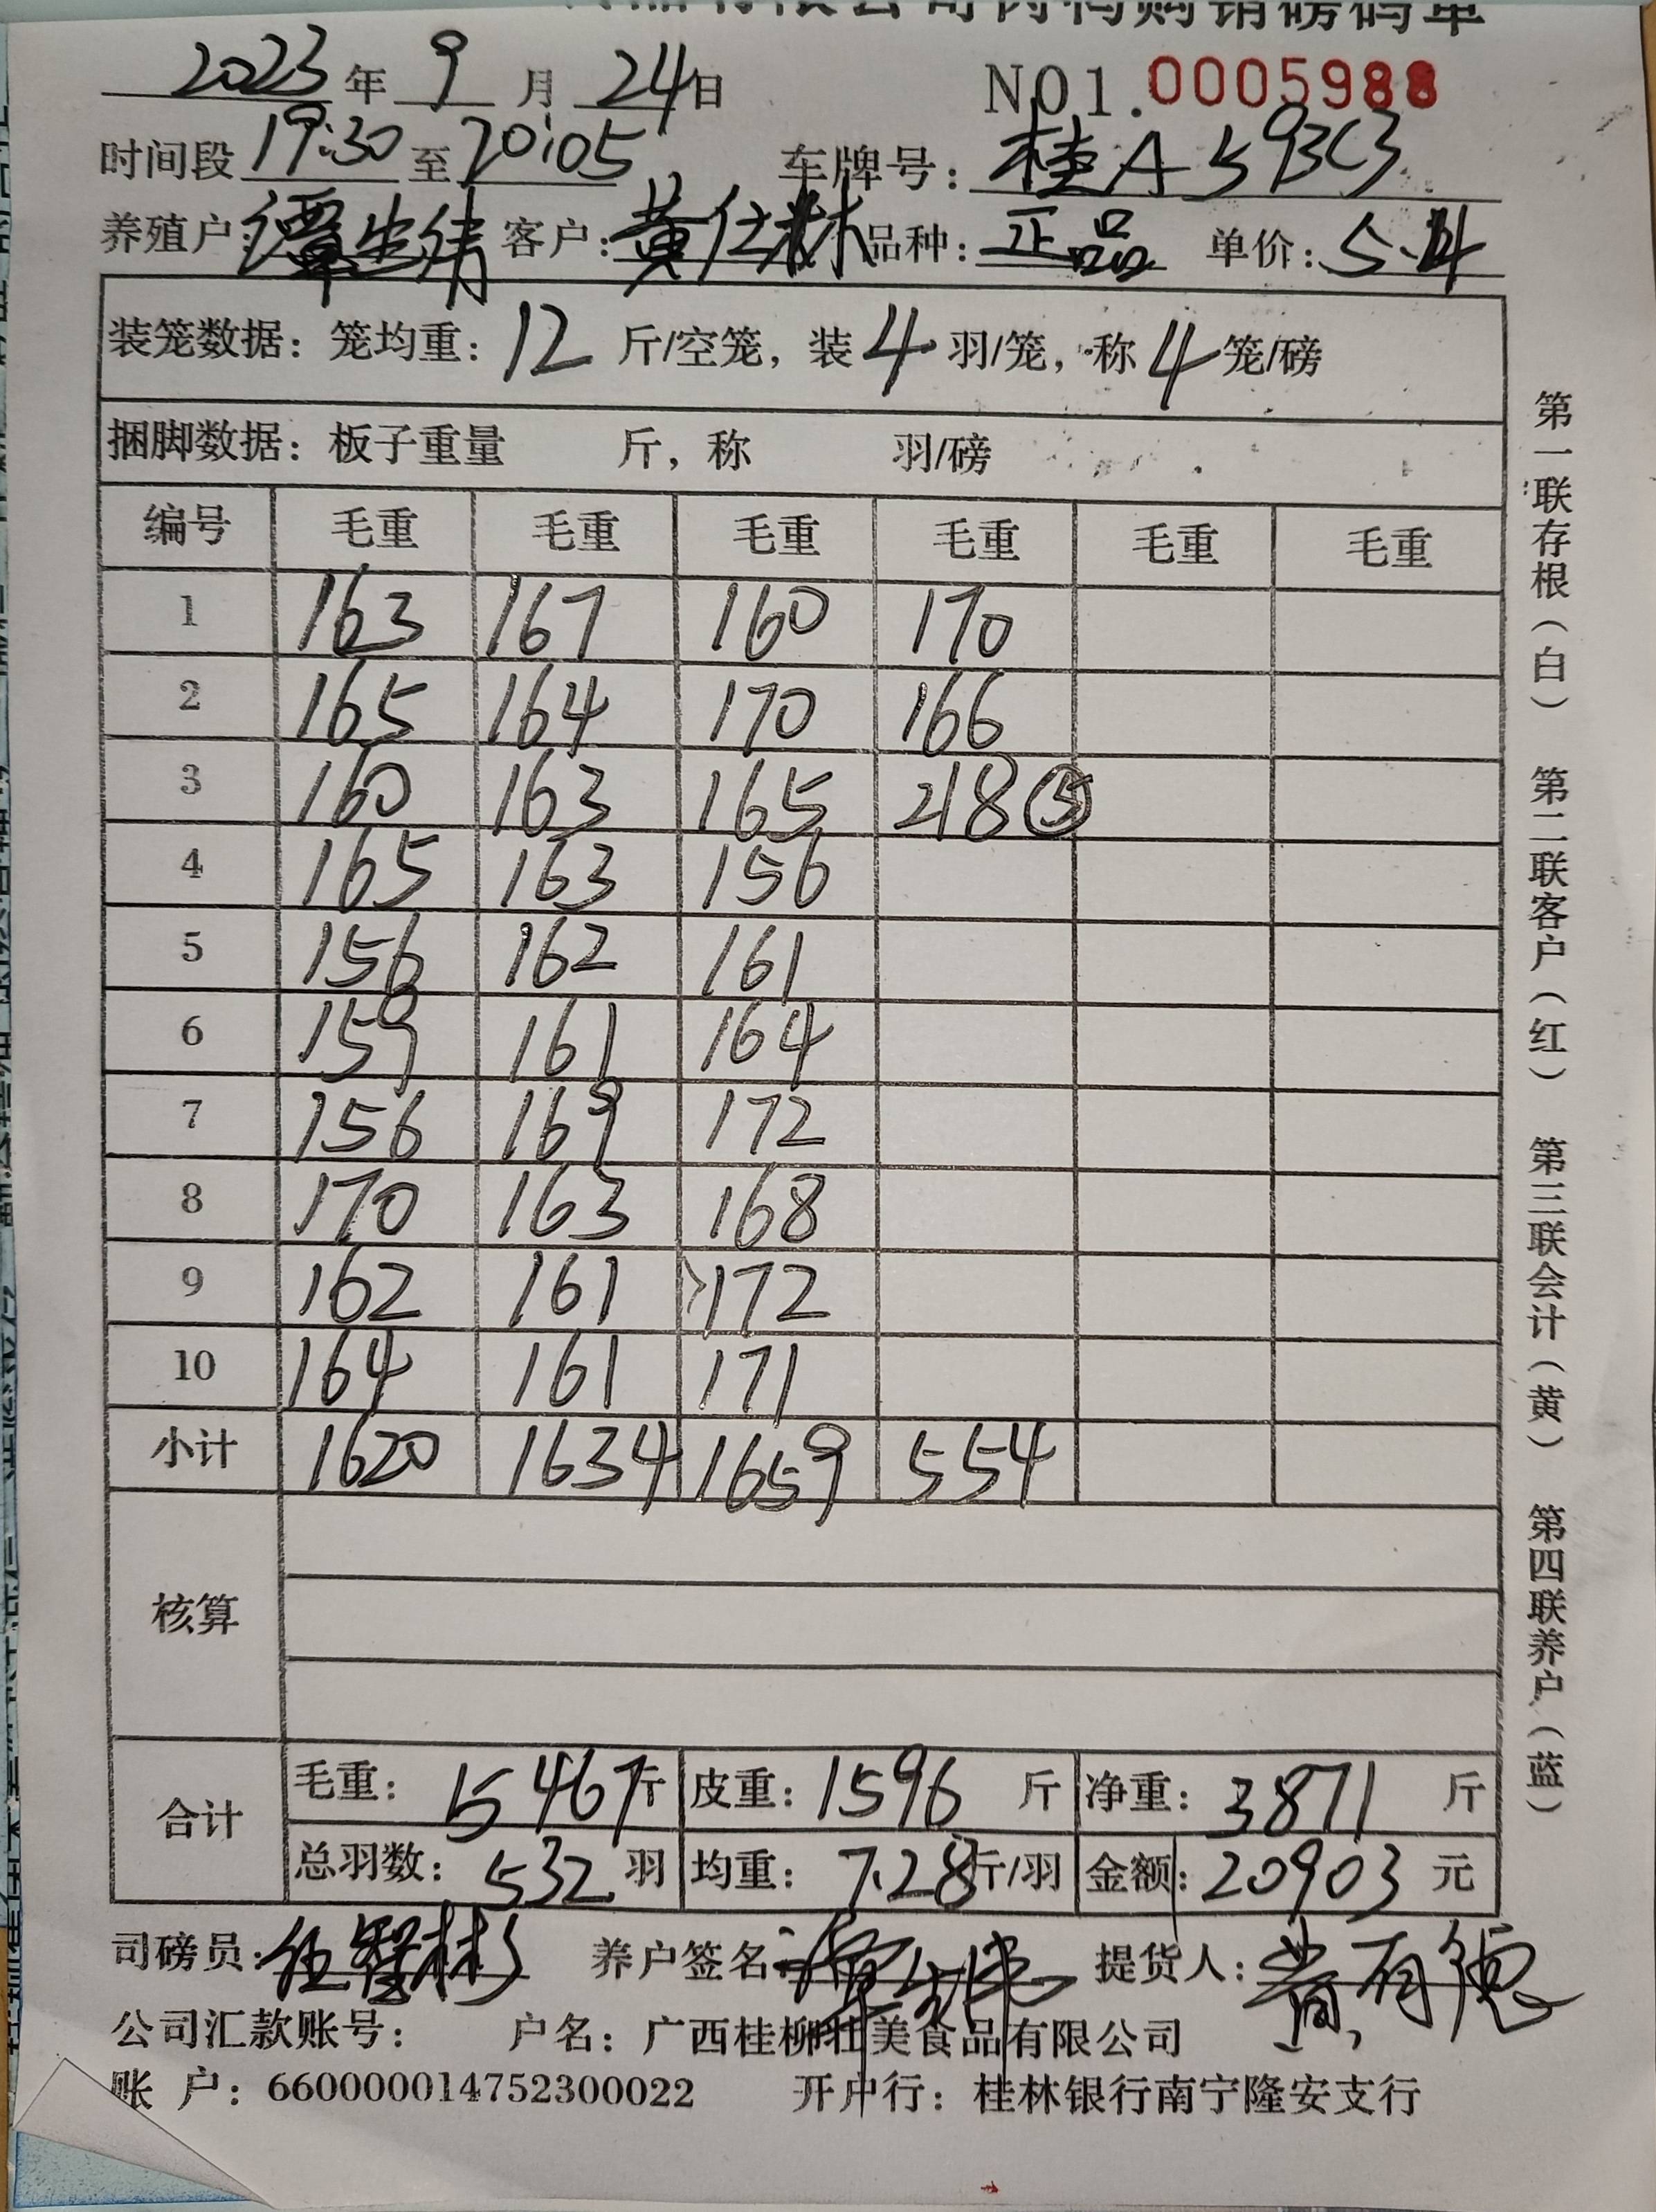 有限公司肉鸭购销磅码单
2023年9月24日 NO1.0005988
时间段19:30至20:05 车牌号:桂A593C3
养殖户: 客户:黄仕林 品种:正品 单价:5.4
装笼数据:笼均重:12斤/空笼,装4羽/笼,称4笼/磅
捆脚数据:板子重量 斤,称 羽/磅
编号 毛重 毛重 毛重 毛重 毛重 毛重
1 163 167 160 170
2 165 164 170 166
3 160 163 165 218⑤
4 165 163 156
5 156 162 161
6 159 161 164
7 156 169 172
8 170 163 168
9 162 161 172
10 164 161 171
小计 1620 1634 1659 554
核算
合计 毛重:5467斤 皮重:1596斤 净重:3871斤
总羽数:532羽 均重:7.28斤/羽 金额:20903元
司磅员: 养户签名: 提货人:黄有德
公司汇款账号: 户名:广西桂柳壮美食品有限公司
账 户:660000014752300022 开户行:桂林银行南宁隆安支行
第一联存根(白) 第二联客户(红) 第三联会计(黄) 第四联养户(蓝)